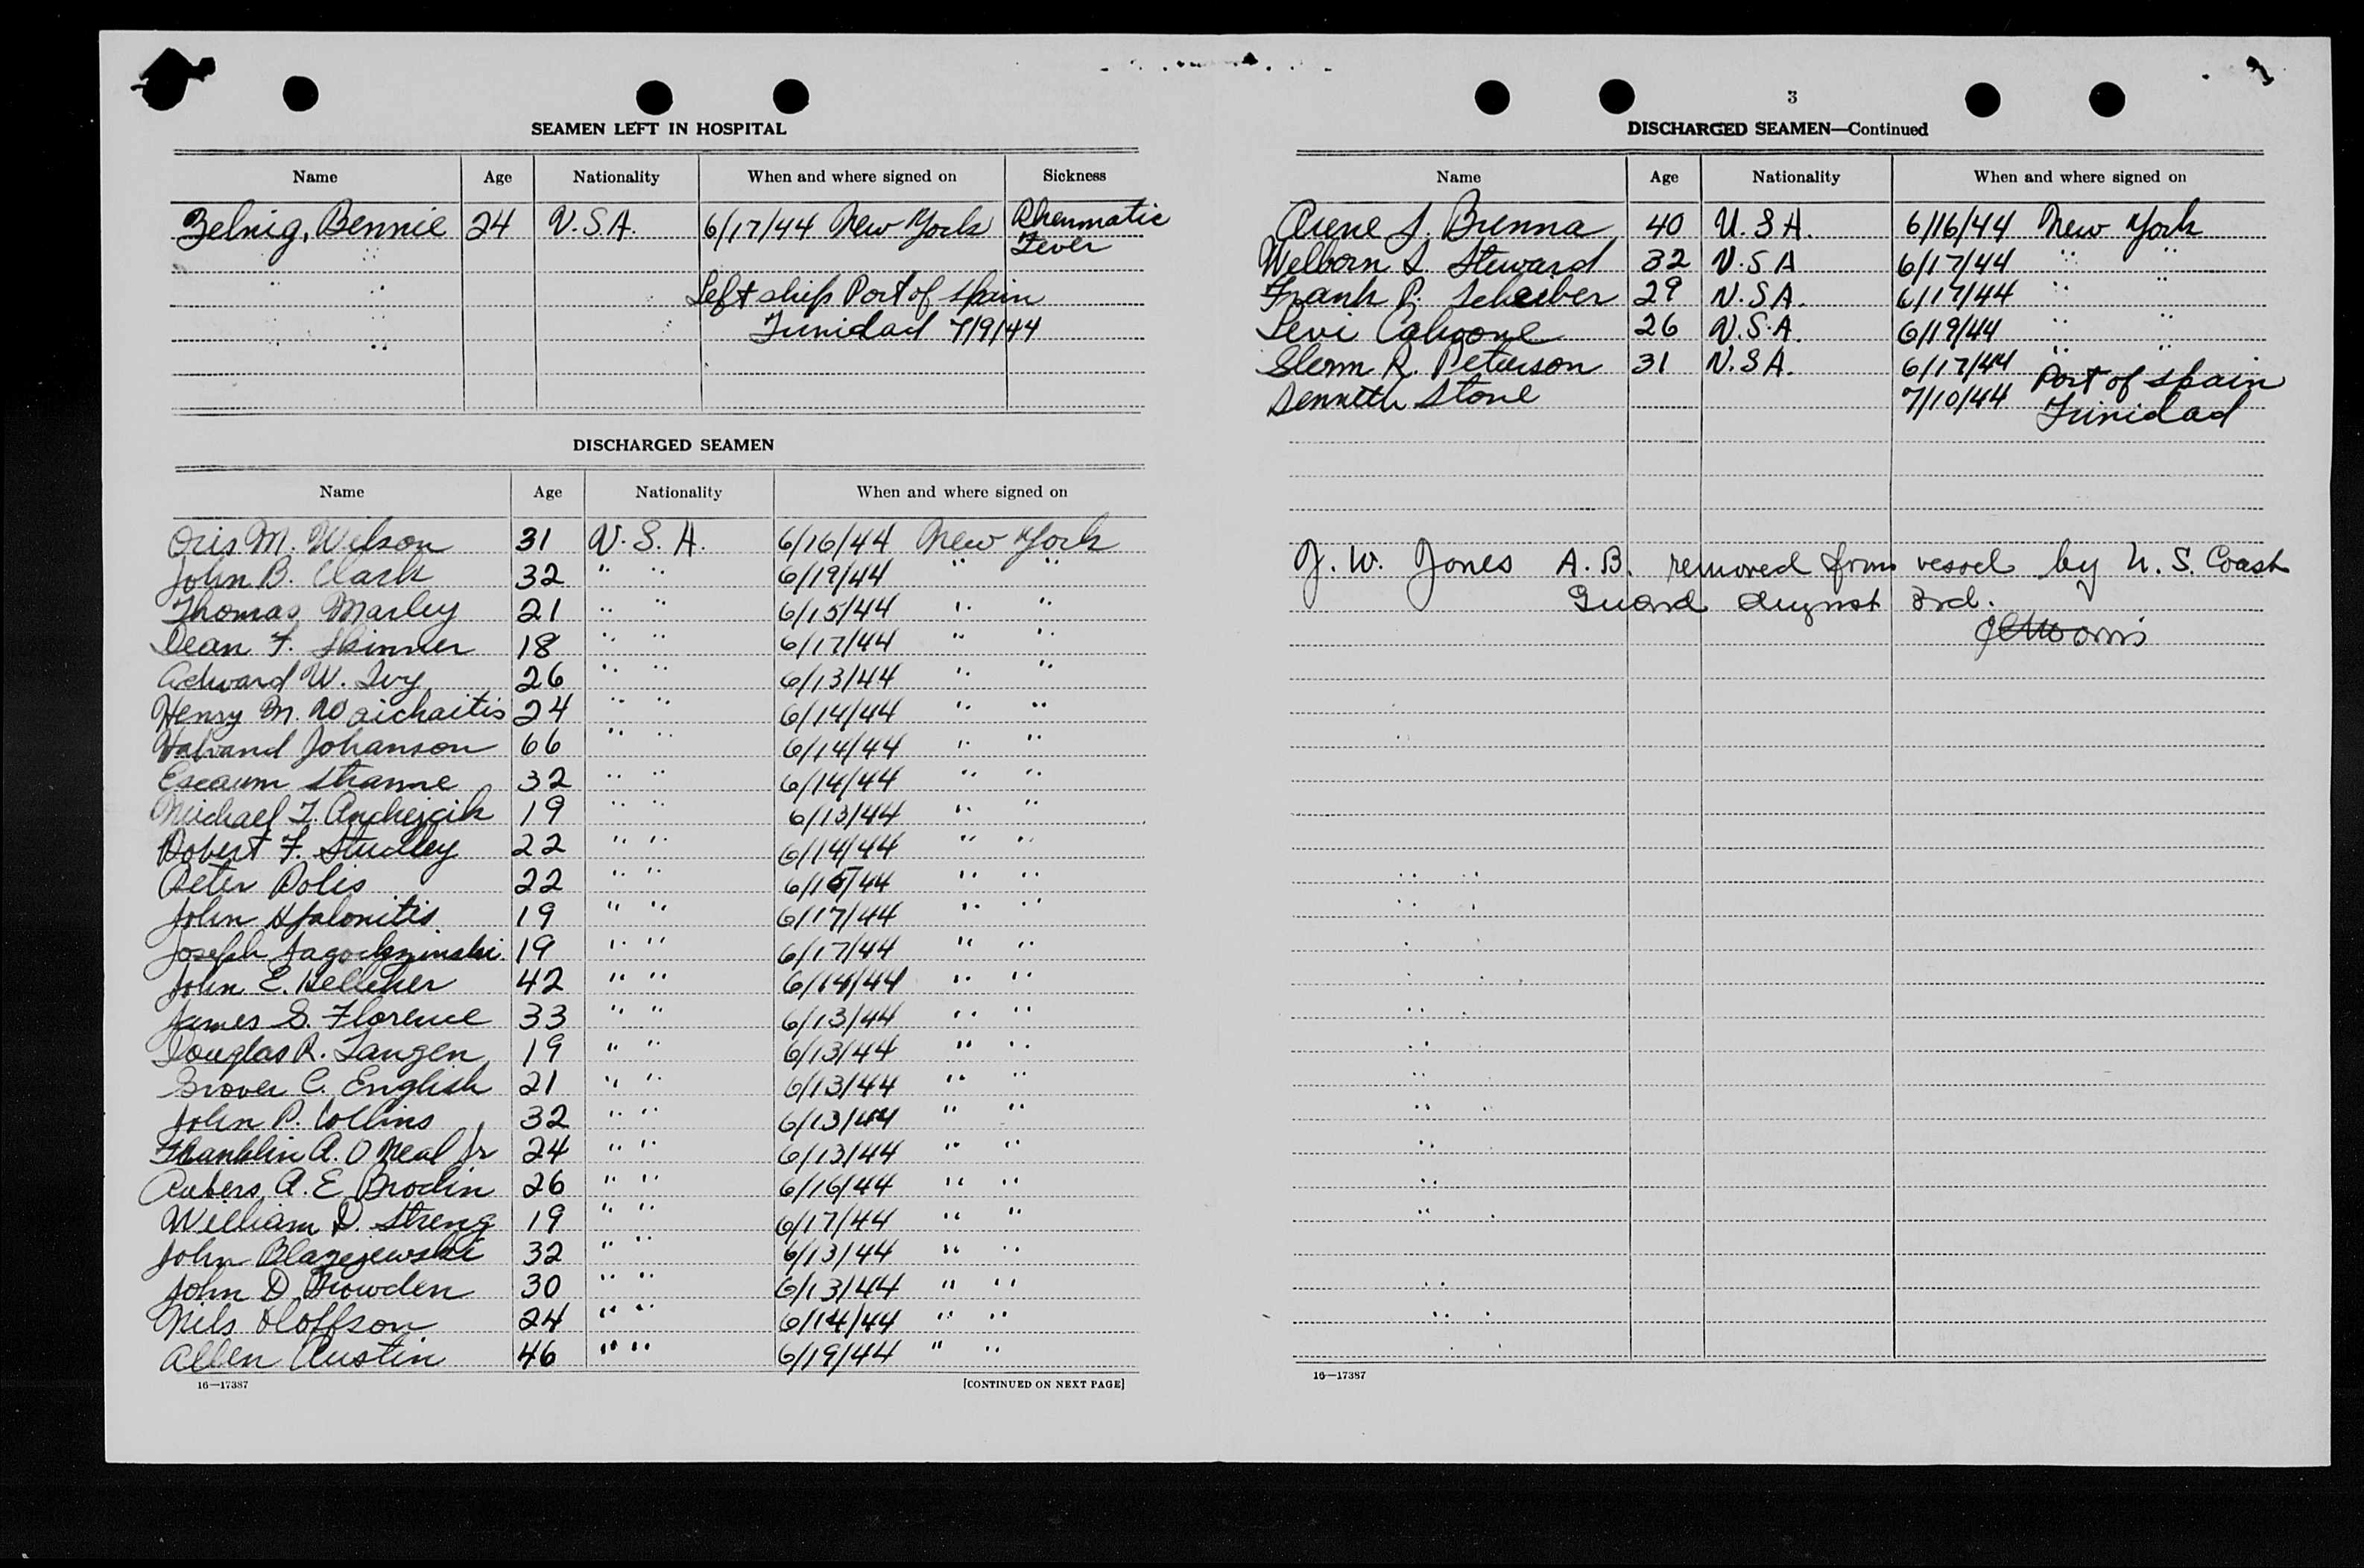 SEAMEN LEFT IN HOSPITAL
Name Age Nationality When and where signed on Sickness
Zelnig, Bennie 24 U.S.A. 6/17/44 New York Rheumatic
Fever
Left ship Port of Spain
Trinidad 7/9/44
DISCHARGED SEAMEN
Name Age Nationality When and where signed on
Oris M. Wilson 31 U.S.A. 6/16/44 New York
John B. Clark 32 " " 6/19/44 " "
Thomas Marley 21 " " 6/15/44 " "
Dean F. Skinner 18 " " 6/17/44 " "
Edward W. Ivy 26 " " 6/13/44 " "
Henry M. Waichaitis 24 " " 6/14/44 " "
Johanson 66 " " 6/14/44 " "
32 " " 6/14/44 " "
Michael J. Andrejcik 19 " " 6/13/44 " "
Robert F. Studley 22 " " 6/14/44 " "
Peter Polis 22 " " 6/15/44 " "
John 19 " " 6/17/44 " "
Joseph Jagodzinski 19 " " 6/17/44 " "
John E. Kelliher 42 " " 6/14/44 " "
James S. Florence 33 " " 6/13/44 " "
Douglas R. Langen 19 " " 6/13/44 " "
Grover C. English 21 " " 6/13/44 " "
John P. Collins 32 " " 6/13/44 " "
Franklin A. O Neal Jr 24 " " 6/13/44 " "
A. E. Brodin 26 " " 6/16/44 " "
William D. Streng 19 " " 6/17/44 " "
John Blazejewski 32 " " 6/13/44 " "
John D. 30 " " 6/13/44 " "
Nils Oloffson 24 " " 6/14/44 " "
Allen Austin 46 " " 6/19/44 " "
16—17387 [CONTINUED ON NEXT PAGE]
3
DISCHARGED SEAMEN—Continued
Name Age Nationality When and where signed on
Brenna 40 U.S.A. 6/16/44 New York
Welborn S. Steward 32 U.S.A 6/17/44 " "
Frank P. Scheiber 29 U.S.A. 6/17/44 " "
Levi Cahoone 26 U.S.A. 6/19/44 " "
Glenn R. Peterson 31 U.S.A. 6/17/44 " "
Kenneth Stone 7/10/44 Port of Spain
Trinidad
J. W. Jones A.B. removed from vessel by U.S. Coast
Guard August 3rd.
16—17387